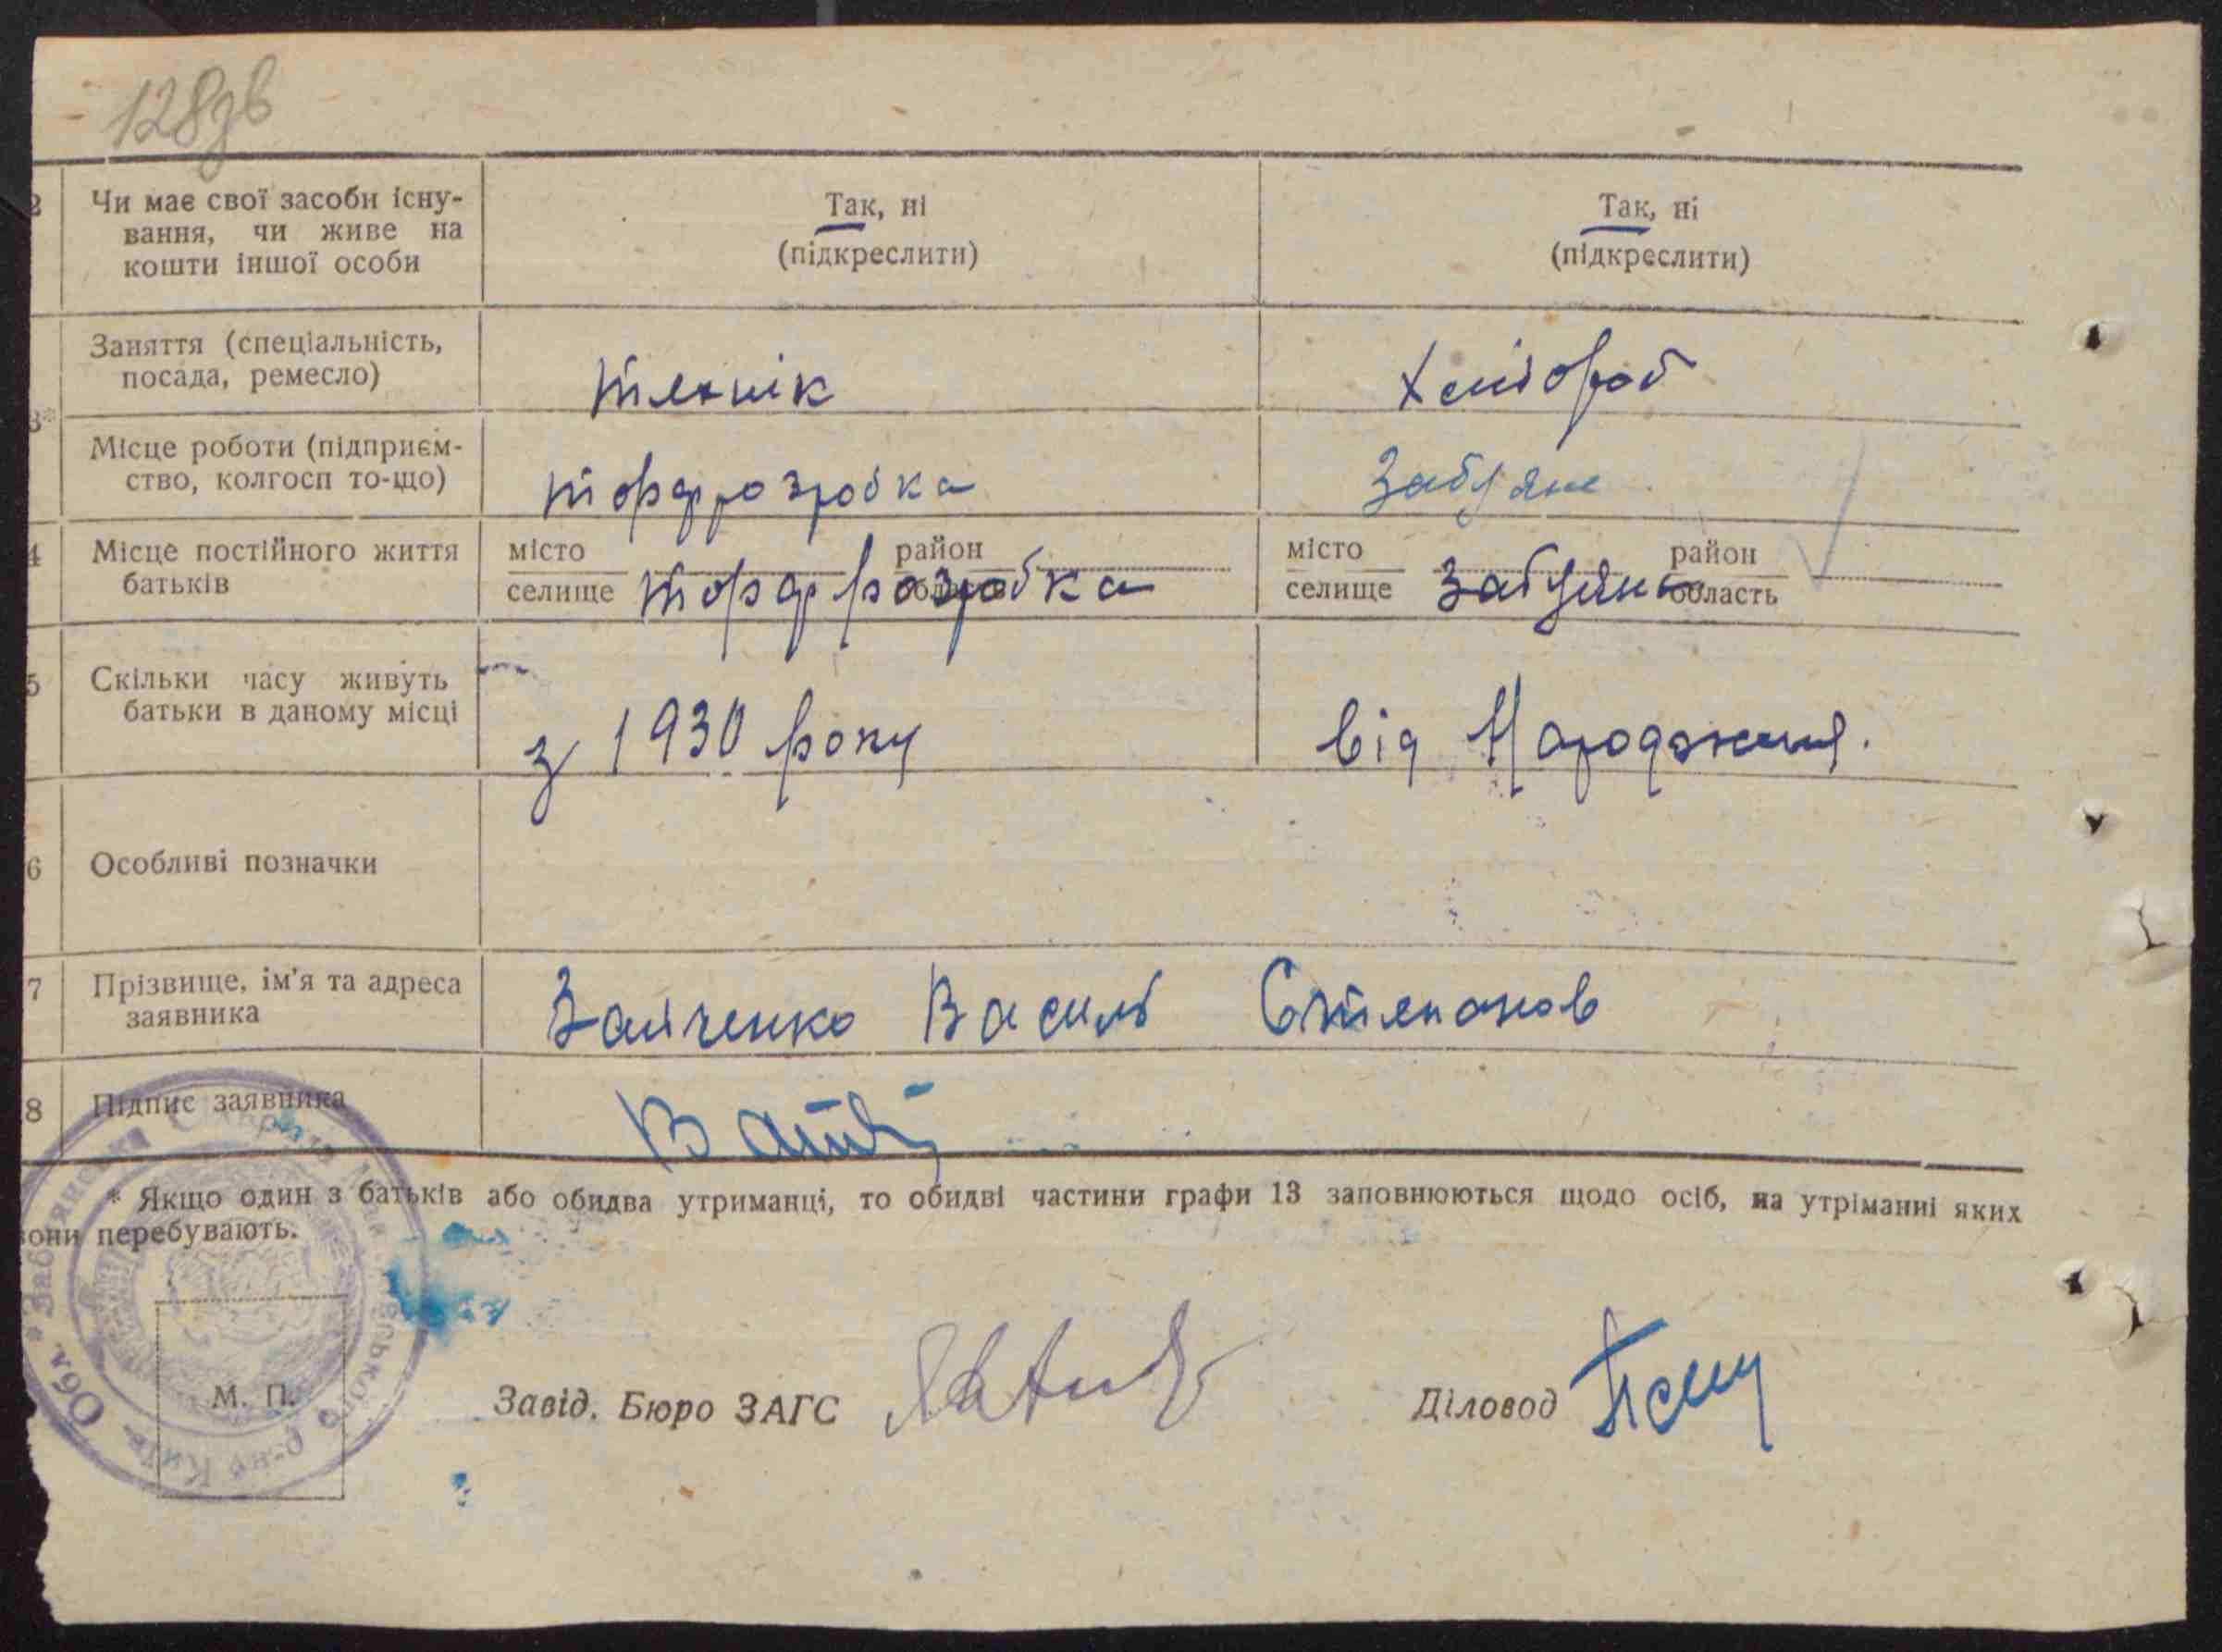 128зв
2 Чи має свої засоби існу- Так, ні Так, ні
вання, чи живе на (підкреслити) (підкреслити)
кошти іншої особи
Заняття (спеціальність,
посада, ремесло) технік хлібороб
3*
Місце роботи (підприєм-
ство, колгосп то-що) торфрозробка Забуяне
4 Місце постійного життя місто район місто район
батьків селище торфрозробка область селище Забуяне область
5 Скільки часу живуть
батьки в даному місці з 1930 року від Народження.
6 Особливі позначки
7 Прізвище, ім'я та адреса
заявника Зайченко Василь Степанов
8 Підпис заявника
* Якщо один з батьків або обидва утриманці, то обидві частини графи 13 заповнюються щодо осіб, на утриманні яких
вони перебувають.
М. П.
Завід. Бюро ЗАГС Діловод
р-ну Київ. Обл. * Забуянська